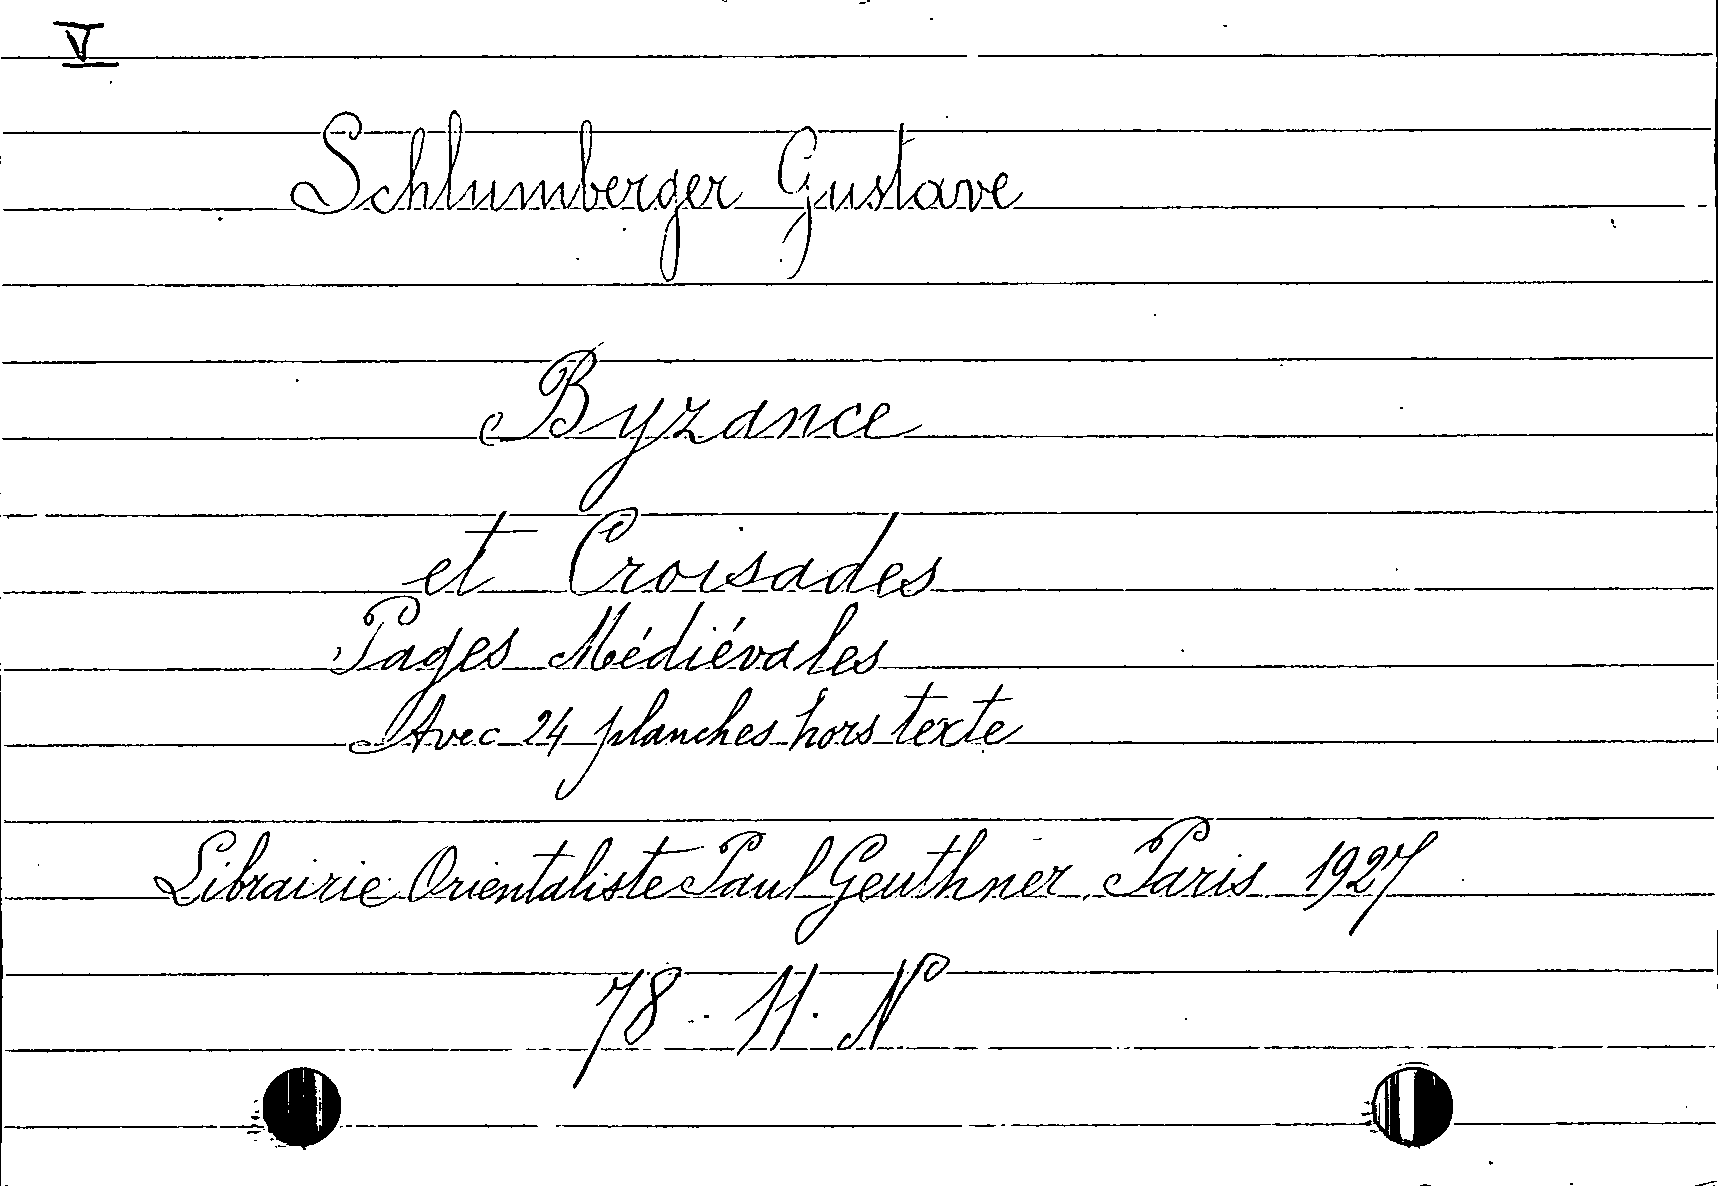 V
Schlumberger Gustave
Byzance
et Croisades
Pages Médiévales
Avec 24 planches hors texte
Librairie Orientaliste Paul Geuthner Paris 1927
78. 11. N